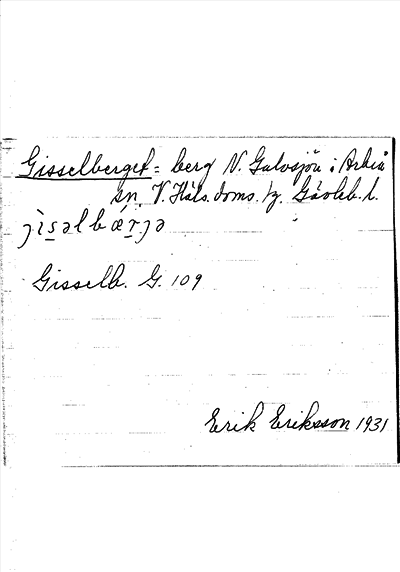 Gisselberget = berg N. Galvsjön i Arbrå
sn, V. Häls. doms. hg. Gävleb. l.
ȷìsəlbǽrȷə
Gisselb. G. 109
Erik Eriksson 1931